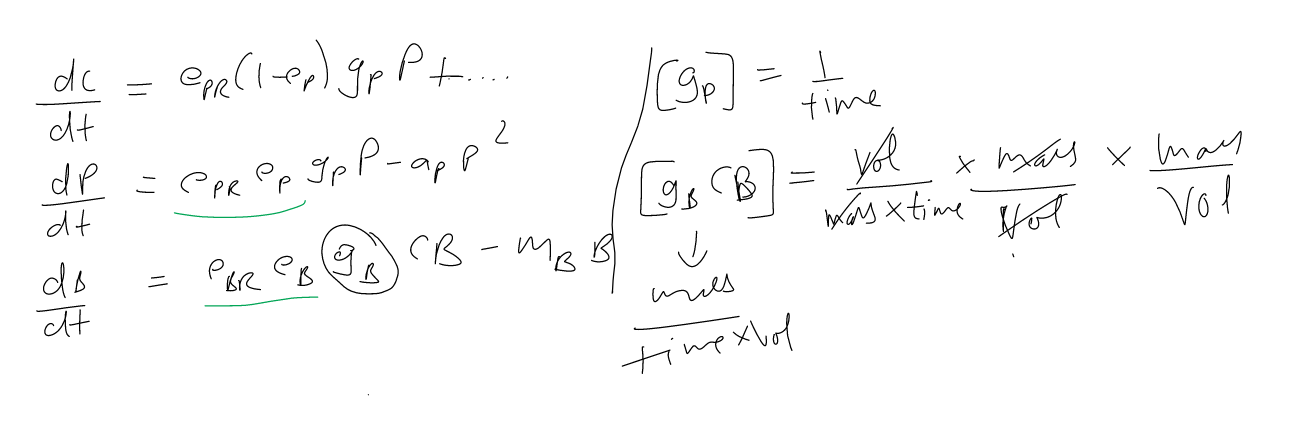 dC/dt = e_PR(1-e_p) g_p P + ....
dP/dt = e_PR e_p g_p P - a_p P²
dB/dt = e_BR e_B g_B CB - m_B B
[g_p] = 1/time
[g_B CB] = Vol/(mass × time) × mass/Vol × mass/Vol
↓
mass/(time × Vol)